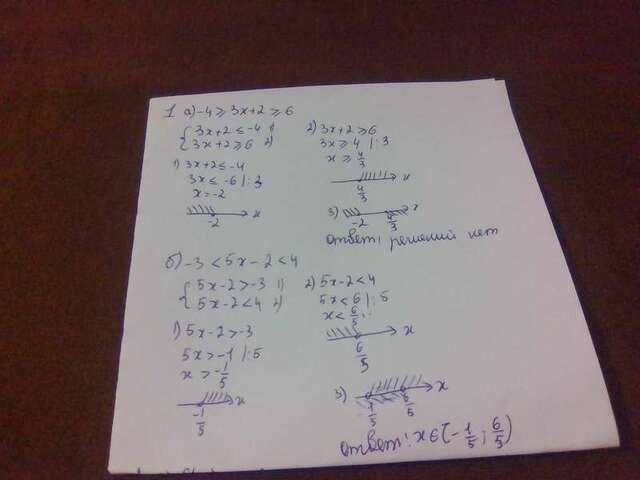 1 а) -4 ⩾ 3x+2 ⩾ 6
{ 3x+2 ≤ -4 1)
{ 3x+2 ⩾ 6 2)
1) 3x+2 ≤ -4
3x ≤ -6 |:3
x = -2
-2 x
2) 3x+2 ⩾ 6
3x ⩾ 4 |:3
x ⩾ 4/3
4/3 x
3) -2 4/3 x
ответ: решений нет
б) -3 < 5x - 2 < 4
{ 5x-2 > -3 1)
{ 5x-2 < 4 2)
1) 5x-2 > -3
5x > -1 |:5
x > -1/5
-1/5 x
2) 5x-2 < 4
5x < 6 |:5
x < 6/5
6/5 x
3) -1/5 6/5 x
ответ: x ∈ (-1/5 ; 6/5)